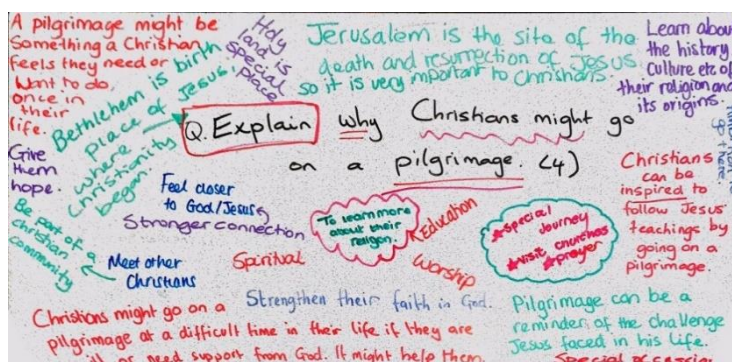 A pilgrimage might be
Something a Christian
feels they need or
Want to do
once in
their
life.
Holy
land is
special
place
Jerusalem is the site of the
death and resurrection of Jesus
so it is very important to Christians.
Learn about
the history
Culture etc of
their religion and
its origins.
Bethlehem is birth
place of Jesus.
where
Christianity
began.
Q. Explain why Christians might go
on a pilgrimage. (4)
Give
them
hope.
Be part of a
christian
community
Feel closer
to God/Jesus
Stronger connection
Meet other
Christians
Spiritual
To learn more
about their
religion.
Education
Worship
Special
journey
visit churches
prayer
Christians
can be
inspired to
follow Jesus
teachings by
going on a
pilgrimage.
Strengthen their faith in God.
Pilgrimage can be a
reminder of the challenge
Jesus faced in his life.
Christians might go on a
pilgrimage at a difficult time in their life if they are
ill or need support from God. It might help them